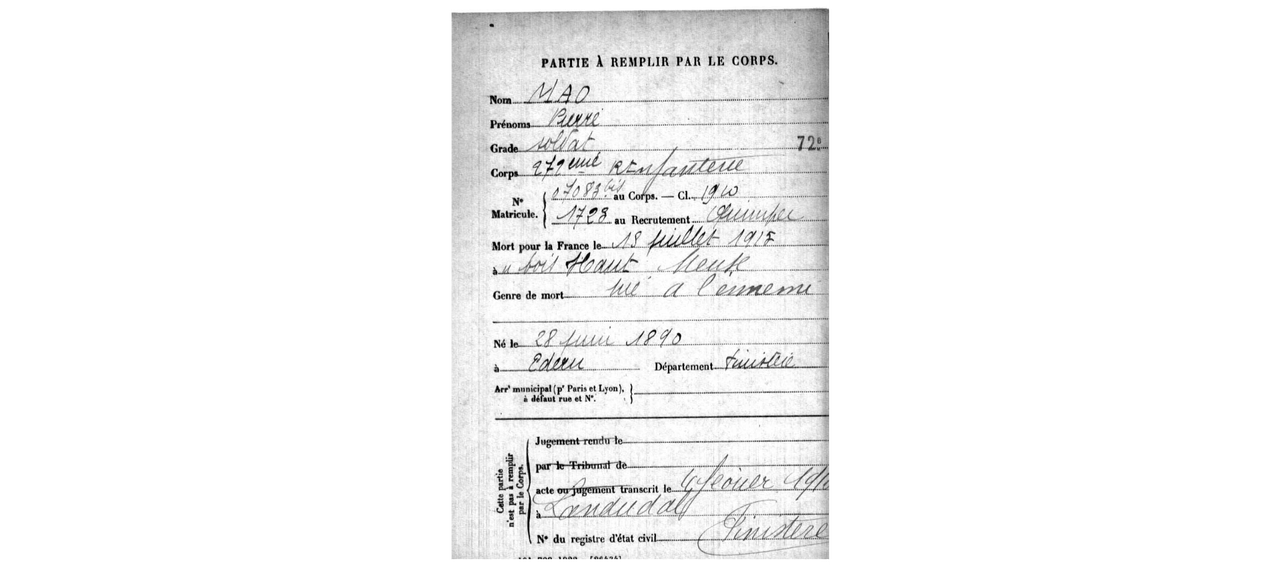 PARTIE À REMPLIR PAR LE CORPS.
Nom MAO
Prénoms Pierre
Grade soldat 72e
Corps 272eme R Infanterie
N° Matricule. { 07083 bis au Corps. — Cl. 1910
1723 au Recrutement Quimper
Mort pour la France le 18 juillet 1915
à u bois Haut Meuse
Genre de mort tué à l'ennemi
Né le 28 juin 1890
à Edern Département Finistère
Arrt municipal (pr Paris et Lyon), à défaut rue et N°. }
Cette partie n'est pas à remplir par le Corps.
Jugement rendu le
par le Tribunal de
acte ou jugement transcrit le 4 février 191
à Landudal
Finistère
N° du registre d'état civil